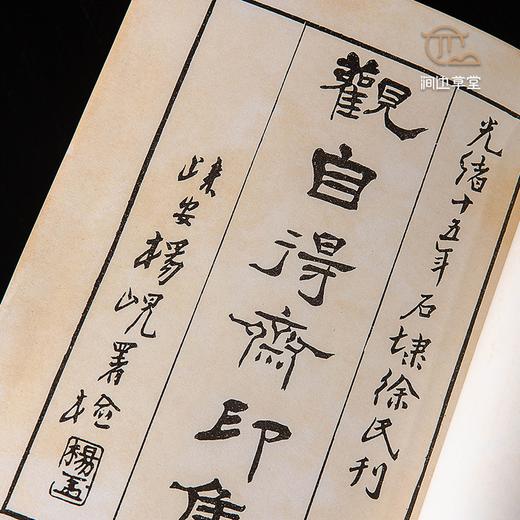 涧边草堂
光緒十五年石埭徐氏刊
觀自得齋印集
歸安楊峴署檢